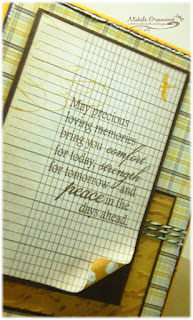 Michele Greenwood
May precious
loving memories
bring you comfort
for today, strength
for tomorrow and
peace in the
days ahead.